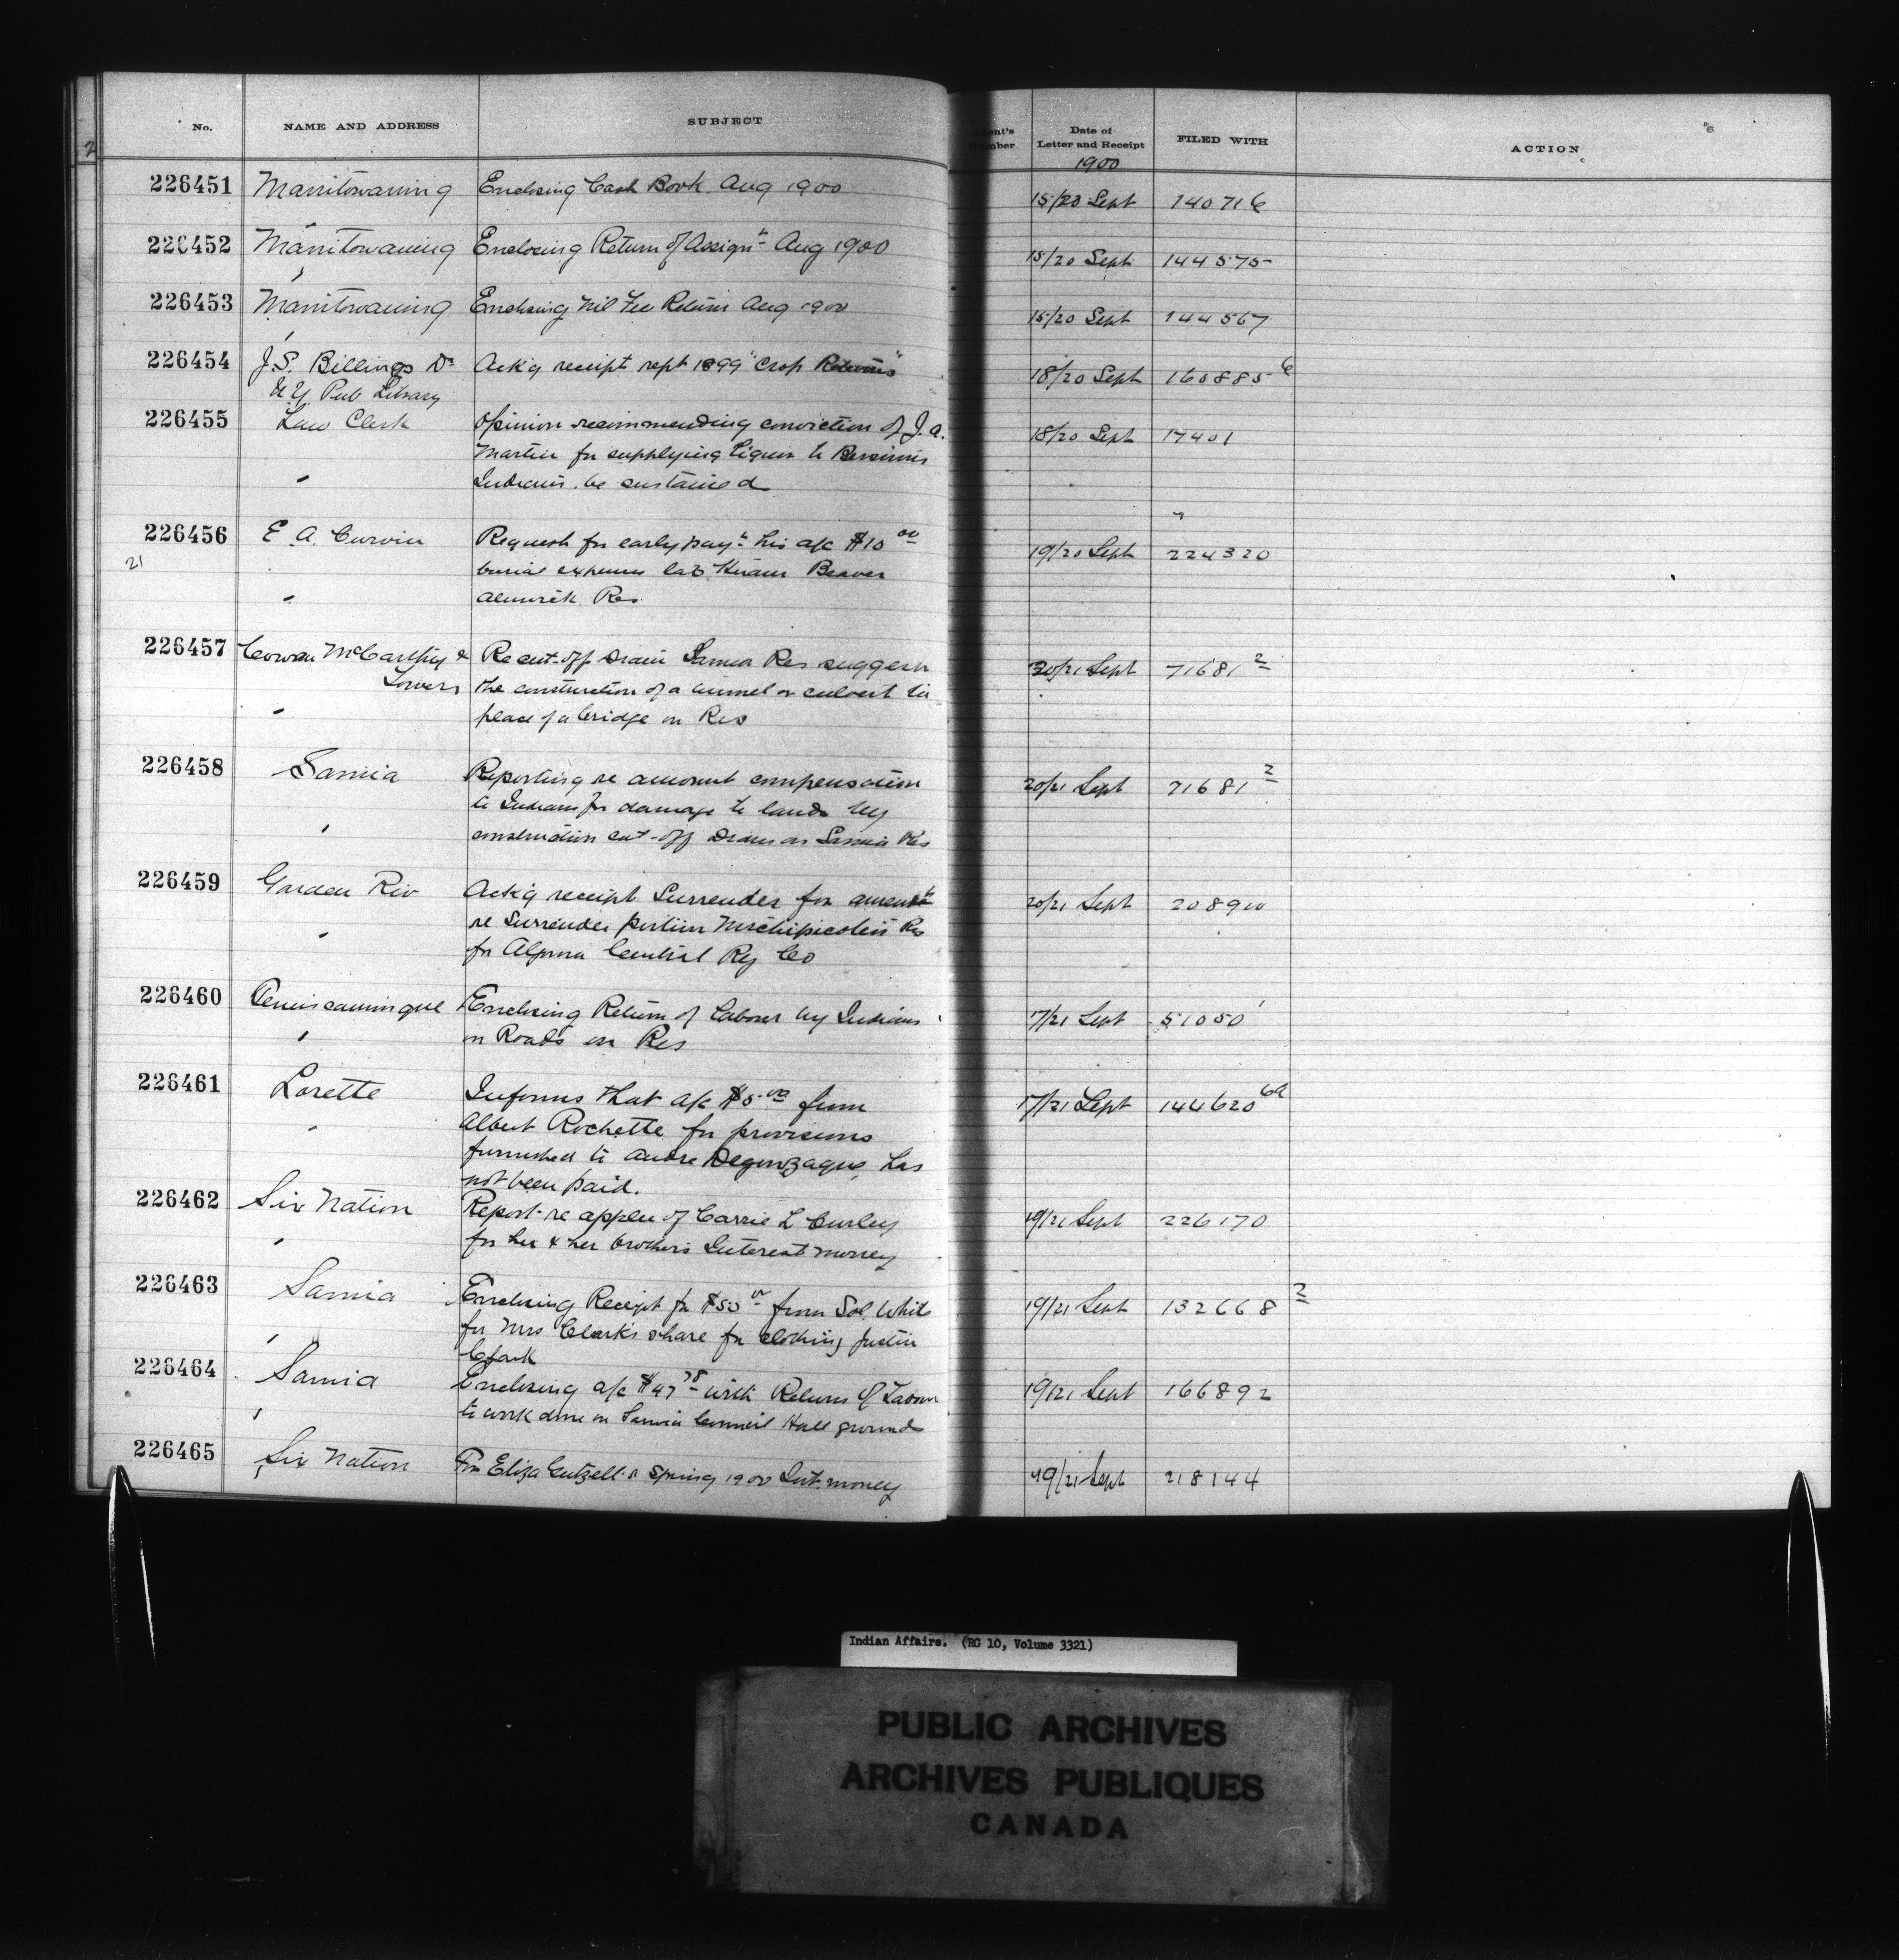 No. NAME AND ADDRESS SUBJECT Agent's Number Date of Letter and Receipt FILED WITH ACTION
1900
226451 Manitowaning Enclosing Cash Book Aug 1900 15/20 Sept 140716
226452 Manitowaning Enclosing Return of Assignts Aug 1900 15/20 Sept 144575
226453 Manitowaning Enclosing Nil Fee Return Aug 1900 15/20 Sept 144567
226454 J.S. Billings Dr Ack'g receipt rept 1899 "Crop Returns" 18/20 Sept 160885
N Y. Pub Library
226455 Law Clerk Opinion recommending conviction of J. A. 18/20 Sept 17401
Martin for supplying liquor to Bersimis
Indians be sustained
226456 E. A. Curvin Request for early payt his a/c $10 00 19/20 Sept 224320
21 burial expenses late Hiram Beaver
Alnwick Res.
226457 Cowan McCarthy & Re cut-off Drain Sarnia Res suggests 20/21 Sept 71681 2
Towers the construction of a tunnel or culvert in
place of a bridge on Res
226458 Sarnia Reporting re amount compensation 20/21 Sept 71681 2
to Indians for damage to lands by
construction cut-off Drain on Sarnia Res
226459 Garden Riv Ack'g receipt Surrender for 20/21 Sept 208900
re Surrender portion Michipicoten Res
for Algoma Central Ry Co
226460 Temiscamingue Enclosing Return of Labour by Indians 17/21 Sept 51050
on Roads on Res
226461 Lorette Informs that a/c $5.00 from 17/21 Sept 144620 6a
Albert Rochette for provisions
furnished to Andre Degonzague, has
not been paid.
226462 Six Nation Report re applcn of Carrie L Curley 19/21 Sept 226170
for her & her brother's Interest money
226463 Sarnia Enclosing Receipt for $50 00 from Sol White 19/21 Sept 132668 2
for Mrs Clark's share for clothing Justin
Clark
226464 Sarnia Enclosing a/c $47 78 with Return of Labour 19/21 Sept 166892
to work done on Sarnia Council Hall grounds
226465 Six Nation For Eliza Gutzell's Spring 1900 Int. money 19/21 Sept 218144
Indian Affairs. (RG 10, Volume 3321)
PUBLIC ARCHIVES
ARCHIVES PUBLIQUES
CANADA